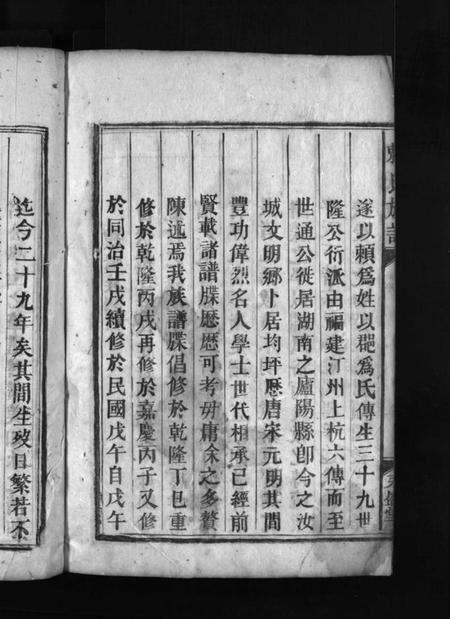 賴氏族譜
遂以賴爲姓以郡爲氏傳生三十九世
隆公衍派由福建汀州上杭六傳而至
世通公徙居湖南之廬陽縣卽今之汝
城文明鄉卜居均坪歷唐宋元明其間
豐功偉烈名人學士世代相承已經前
賢載諸譜牒歷歷可考毋庸余之多贅
陳述焉我族譜牒倡修於乾隆丁巳重
修於乾隆丙戌再修於嘉慶丙子又修
於同治壬戌續修於民國戊午自戊午
迄今二十九年矣其間生歿日繁若不